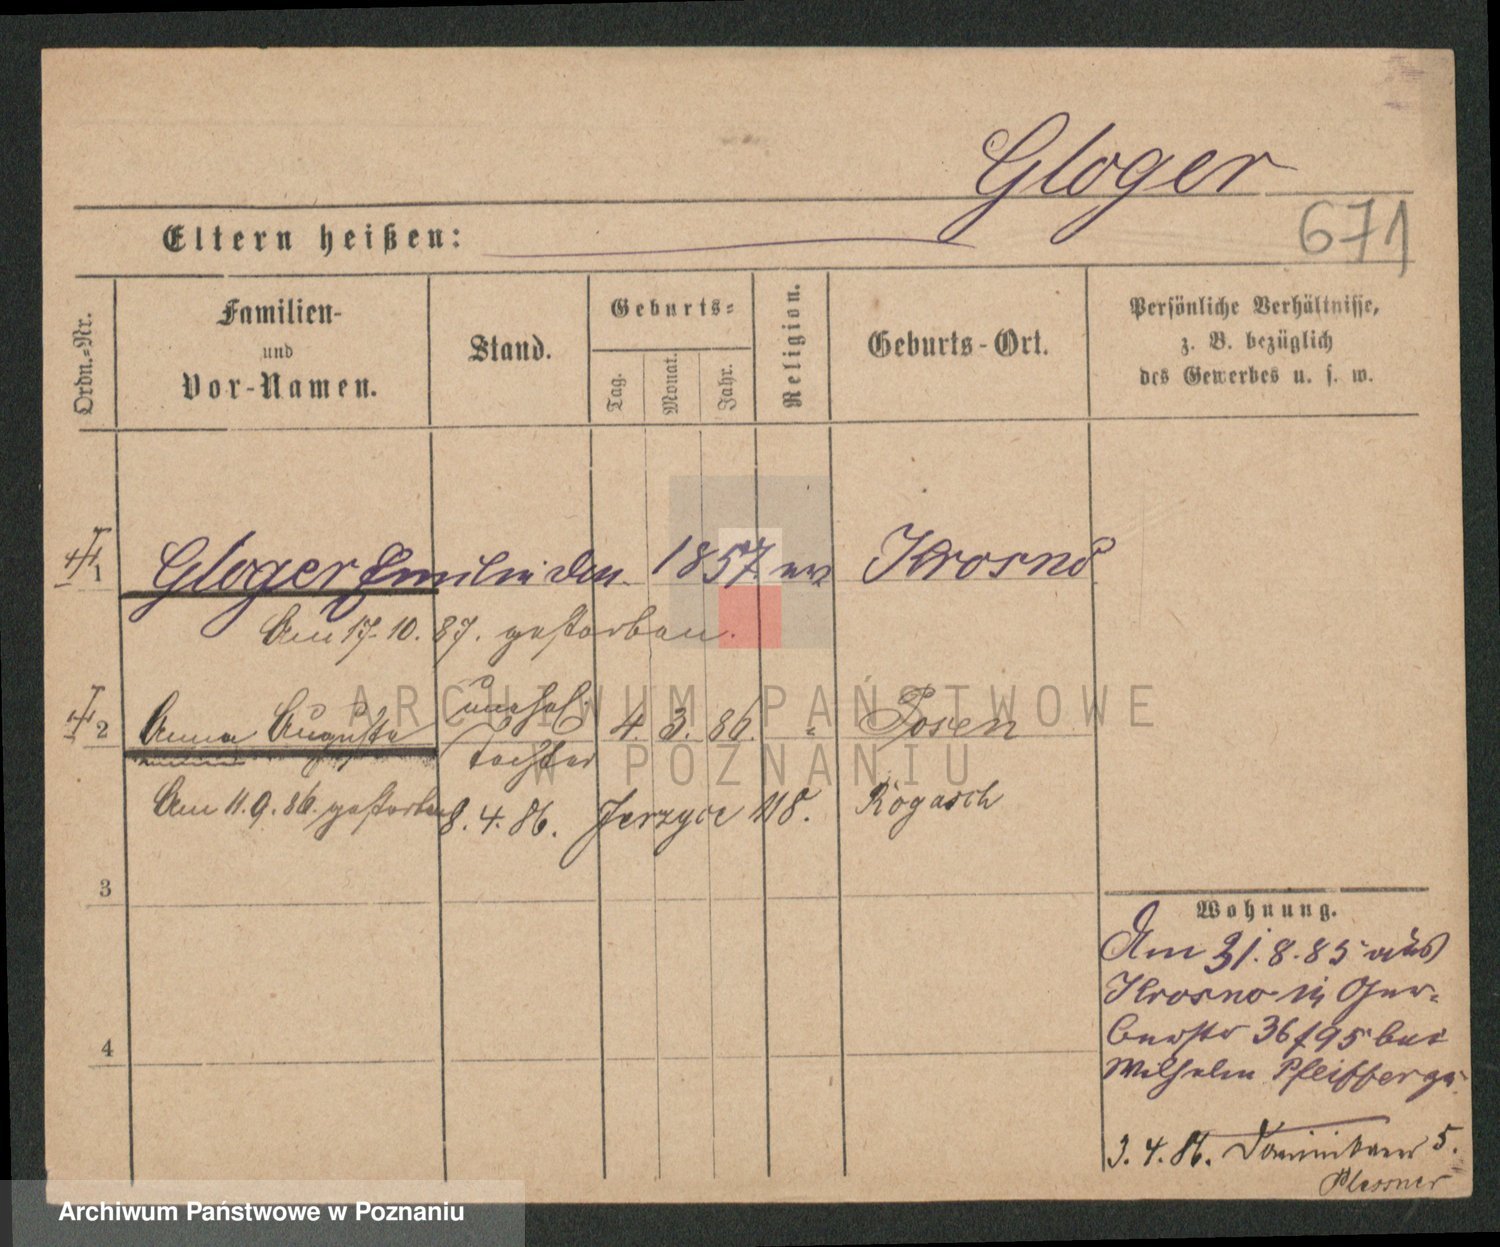 Gloger
671
Eltern heißen:
Ordn.-Nr.
Familien-
und
Vor-Namen.
Stand.
Geburts-
Tag.
Monat.
Jahr.
Religion.
Geburts-Ort.
Persönliche Verhältnisse,
z. B. bezüglich
des Gewerbes u. s. w.
1 Gloger Emilie den 1857 ev Krosno
Am 17.10.87. gestorben.
2 Anna Auguste unehel Tochter 4. 3. 86. " Posen
Am 11.9.86. gestorben 8.4.86. Jerzyce 118. Rogasch
3
4
Wohnung.
Am 31.8.85 aus
Krosno in Ger-
berstr 36/95 bei
Wilhelm Pfeiffer
3.4.86. Dominikaner 5.
Plessner
ARCHIWUM PAŃSTWOWE
W POZNANIU
Archiwum Państwowe w Poznaniu